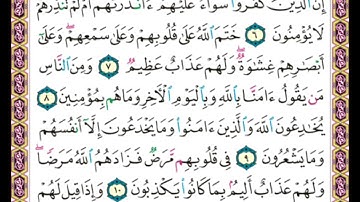 إِنَّ ٱلَّذِينَ كَفَرُوا۟ سَوَآءٌ عَلَيْهِمْ ءَأَنذَرْتَهُمْ أَمْ لَمْ تُنذِرْهُمْ
لَا يُؤْمِنُونَ ٦ خَتَمَ ٱللَّهُ عَلَىٰ قُلُوبِهِمْ وَعَلَىٰ سَمْعِهِمْ ۖ وَعَلَىٰٓ
أَبْصَٰرِهِمْ غِشَٰوَةٌ ۖ وَلَهُمْ عَذَابٌ عَظِيمٌ ٧ وَمِنَ ٱلنَّاسِ
مَن يَقُولُ ءَامَنَّا بِٱللَّهِ وَبِٱلْيَوْمِ ٱلْءَاخِرِ وَمَا هُم بِمُؤْمِنِينَ ٨
يُخَٰدِعُونَ ٱللَّهَ وَٱلَّذِينَ ءَامَنُوا۟ وَمَا يَخْدَعُونَ إِلَّآ أَنفُسَهُمْ
وَمَا يَشْعُرُونَ ٩ فِى قُلُوبِهِم مَّرَضٌ فَزَادَهُمُ ٱللَّهُ مَرَضًا ۖ
وَلَهُمْ عَذَابٌ أَلِيمٌۢ بِمَا كَانُوا۟ يَكْذِبُونَ ١٠ وَإِذَا قِيلَ لَهُمْ